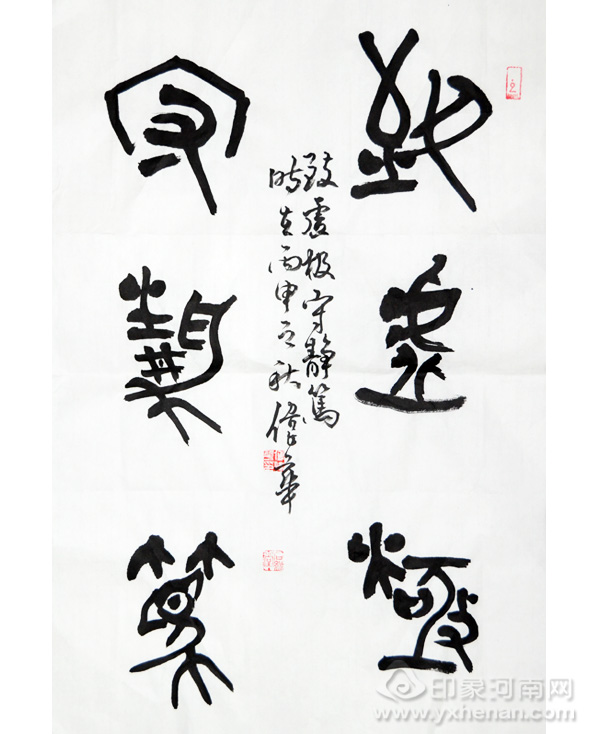 致虛極
守靜篤
致虛極守靜篤
時在丙申之秋偉華
印象河南网
www.yxhenan.com